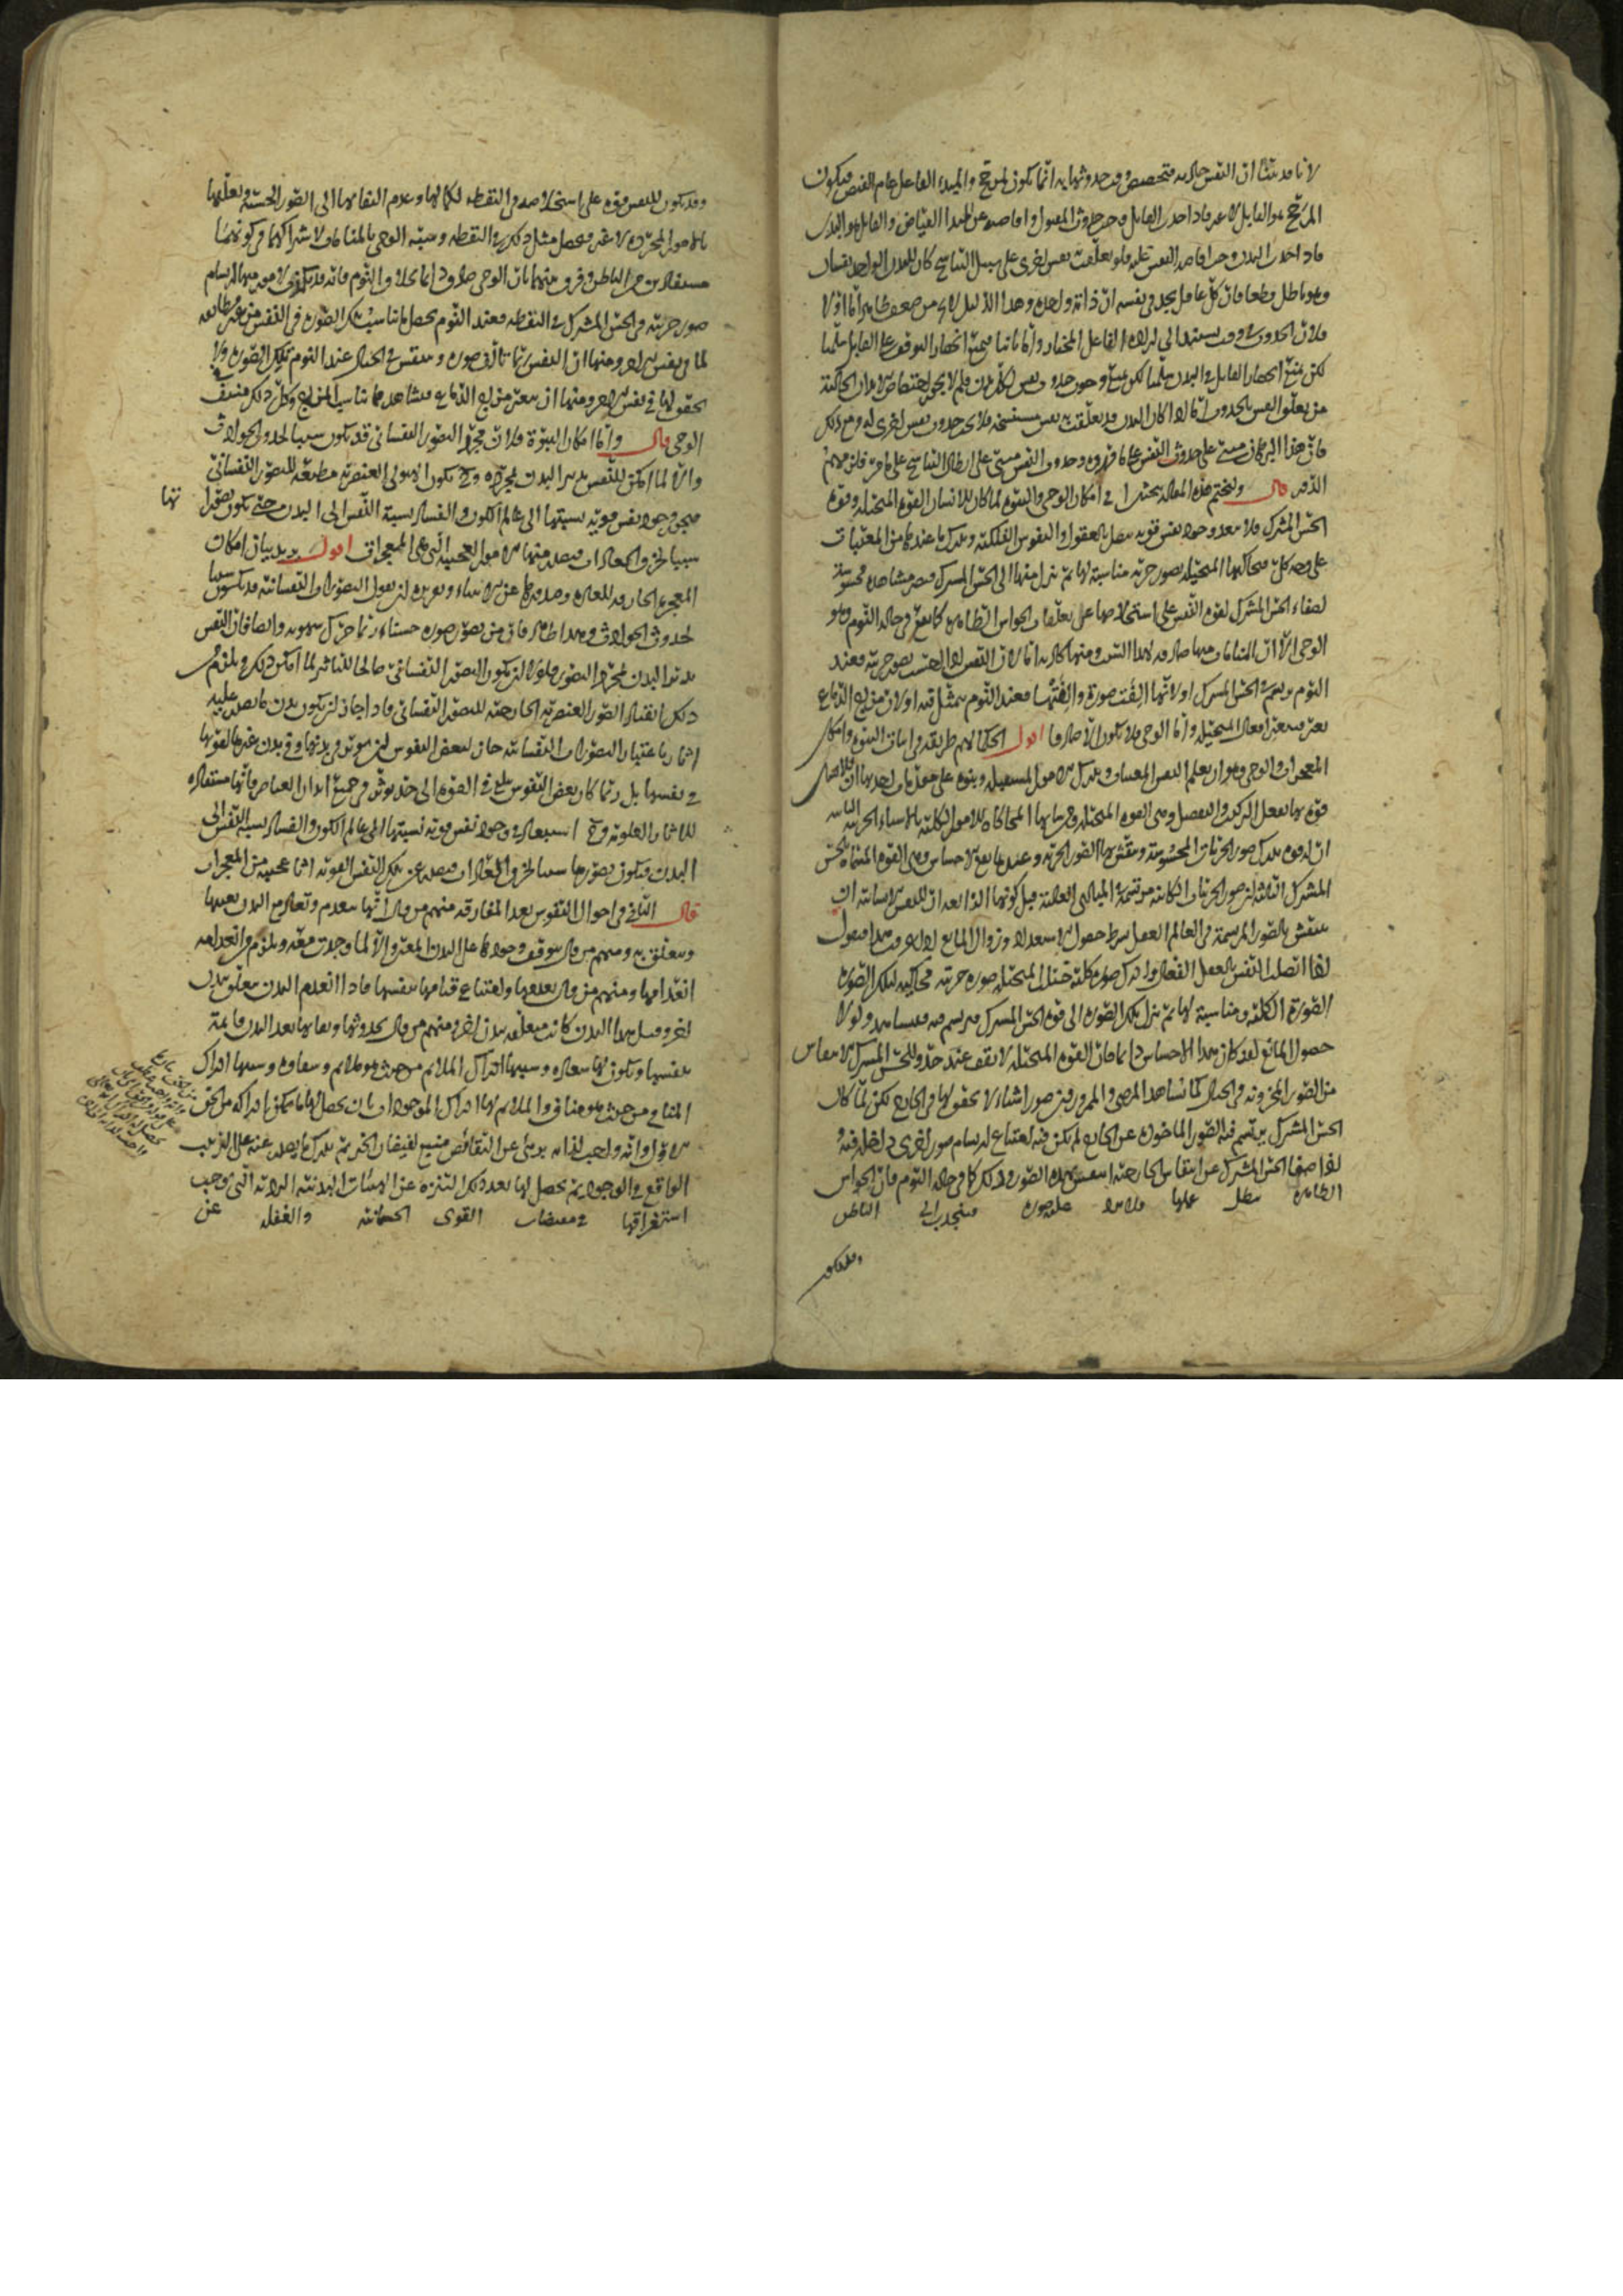 لانا قد بيّنا ان النفس حادثة متخصص وقت حدوثها به انما يكون لمرجح والمبدء الفاعل عام الفيض فيكون
المرجح هو القابل لا غير فاذا حدث القابل وجب حدوث المقبول وافاضته عن المبدا الفياض والقابل هو البدن
فاذا حدث البدن وجب افاضة النفس عليه فلو تعلقت نفس اخرى على سبيل التناسخ كان للبدن الواحد نفسان
وهو باطل قطعا فان كل عاقل يجد في نفسه ان ذاته واحدة وهذا الدليل لا يخ من ضعف ظاهر اما اولا
فلان الحدوث في وقت يستند الى ارادة الفاعل المختار واما ثانيا فيمنع انحصار التوقف على القابل سلّمنا
لكن نمنع انحصار القابل في البدن سلّمنا لكن نمنع وجوب حدوث نفس لكل بدن فلم لا يجوز اختصاص الابدان الحاكية
من تعلق النفس بالحدوث اما اذا كان البدن قد تعلقت به نفس مستنسخة فلا يجب حدوث نفس اخرى له ومع ذلك
فان هذا البرهان مبني على حدوث النفس على ما قرروه وحدوث النفس مبني على ابطال التناسخ على ما مر فلزمهم
الدور قال ولنختم هذه المقالة ببحثين ا في امكان الوحي والنبوة لما كان للانسان القوة المتخيلة وقوة
الحس المشترك فلا بعد وجود نفس قوية تتصل بالعقول والنفوس الفلكية وتدرك ما عندها من المغيبات
على وجه كلي فتحاكيها المتخيلة بصور جزئية مناسبة لها ثم تنزل منها الى الحس المشترك فتصير مشاهدة محسوسة
لصفاء الحس المشترك لقوة النفس على استخلاصها عن تعلقات الحواس الظاهرة كما يعرض في حالة النوم وهو
الوحي الا ان المنامات منها صادقة لهذا السبب ومنها كاذبة اما لان النفس اذا احست بصور جزئية فعند
النوم ترتسم في الحس المشترك او لانها الفت صورة والفتها فعند النوم يتمثل فيه او لان مزاج الدماغ
تغير فيتغير افعال المتخيلة واما الوحي فلا يكون الا صادقا اقول الحكماء لهم طريقة في اثبات النبوة وامكان
المعجزات والوحي وهو ان تعلم النفس المغيبات وتدرك الامور المستقبلة وبنوه على مقدمات احديها ان للانسان
قوة بها تفعل التركيب والتفصيل وهي القوة المتخيلة ومن شانها المحاكاة للامور الكلية بالاشياء الجزئية الثانية
ان له قوة تدرك صور الجزئيات المحسوسة وتنتقش بها الصور الجزئية وعندها يقع الاحساس وهي القوة المسماة بالحس
المشترك الثالثة ان صور الجزئيات الكائنة مرتسمة في المبادي العقلية قبل كونها الرابعة ان للنفس الانسانية ان
تنتقش بالصور المرتسمة في العالم العقلي بشرط حصول الاستعداد وزوال المانع اذا عرفت هذا فنقول
اذا اتصلت النفس بالعقل الفعال وادركت صورة كلية تخيلت المتخيلة صورة جزئية محاكية لتلك الصورة
الصورة الكلية ومناسبة لها ثم تنزل تلك الصورة الى قوة الحس المشترك فترتسم فيه فيشاهد ولولا
حصول المانع لقد كان هذا الاحساس دائما فان القوة المتخيلة لا تقف عند حد وللحس المشترك الانتقاش
من الصور المخزونة في الخيال كما نشاهد المرضى والممرورين صور اشياء لا تحقق لها في الخارج لكن لما كان
الحس المشترك يرتسم فيه الصور الماخوذة عن الخارج لم يكن فيه اتساع لارتسام صور اخرى داخلة فيه
اذا صفا الحس المشترك عن انتقاش الخارجية انتقش بهذه الصور وذلك كما في حالة النوم فان الحواس
الظاهرة يبطل عملها فلا يرد عليه صورة فينجذب الى الباطن
وقد يكون
وقد يكون للنفس قوة على استخلاصه في اليقظة لكمالها وعدم التفاتها الى الصور الحسية وتعلقها
بالامور المجردة لا غير فيحصل مثل ذلك في اليقظة وشبه الوحي بالمنامات لاشتراكهما في كونهما
مستفادين من الباطن وفرق بينهما بان الوحي صادق دائما بخلاف النوم فانه قد يكذب لامور منها ارتسام
صور جزئية في الحس المشترك في اليقظة فعند النوم يحصل ما يناسب تلك الصورة في النفس من غير مطالعة
لما في نفس الامر ومنها ان النفس ربما تالف صورة وتنتقش في الخيال عند النوم تلك الصورة ولا
تحقق لها في نفس الامر ومنها ان يتغير مزاج الدماغ فيشاهد ما يناسب المزاج وكل ذلك منتف في
الوحي قال واما امكان النبوة فلان مجرد التصور النفساني قد يكون سببا لحدوث الحوادث
والا لما امكن للنفس تدبير البدن بمجرده وح تكون الهيولى العنصرية مطيعة للتصور النفساني
فيجوز وجود نفس قوية نسبتها الى عالم الكون والفساد نسبة النفس الى البدن حتى يكون تصورا تها
سببا لخرق العادات فيصدر منها الامور العجيبة التي هي المعجزات اقول يريد بيان امكان
المعجزة الخارقة للعادة وصدورها عن الانبياء وتقريره ان نقول التصورات النفسانية قد يكون سببا
لحدوث الحوادث وهذا ظاهر فان من تصور صورة حسناء ربما حرك شهوته وايضا فان النفس
تدبر البدن بمجرد التصور فلولا ان يكون التصور النفساني صالحا للتاثير لما امكن ذلك ويلزم من
ذلك انقياد الصور العنصرية الخارجية للتصور النفساني فاذا جاز ان يكون بدن ما يصدر عليه
اثار باعتبار التصورات النفسانية جاز لبعض النفوس ان تؤثر في بدنها وفي بدن غيرها لقوتها
في نفسها بل ربما كان بعض النفوس بلغ في القوة الى حد يؤثر في جميع ابدان العناصر فانها مستفادة
للاثار العلوية وح لا استبعاد في وجود نفس قوية نسبتها الى عالم الكون والفساد نسبة النفس الى
البدن فيكون تصورها سببا لخرق العادات فيصدر عن تلك النفس القوية اثار عجيبة من المعجزات
قال الثاني في احوال النفوس بعد المفارقة منهم من قال انها تنعدم وتعاد مع البدن بعينها
وتتعلق به ومنهم من قال بتوقف وجودها على البدن المعين والا لما وجدت معه ويلزم من انعدامه
انعدامها ومنهم من قال بقدمها وامتناع قيامها بنفسها فاذا انعدم البدن تتعلق ببدن
اخر وقبل هذا البدن كانت متعلقة ببدن اخر ومنهم من قال بحدوثها وبقائها بعد البدن قائمة
بنفسها وتكون لها سعادة وسببها ادراك الملائم من حيث هو ملائم وشقاوة وسببها ادراك
المنافي من حيث هو مناف والملائم لها ادراك الموجودات بان يحصل لها ما يمكن ادراكه من الحق
الاول وانه واجب لذاته بريء عن النقائص منبع لفيضان الخير ثم تدرك ما يصدر عنه على الترتيب
الواقع في الوجود ثم يحصل لها بعد ذلك التنزه عن الهيئات البدنية الردية التي توجب
استغراقها في مقتضيات القوى الجسمانية والغفلة عن